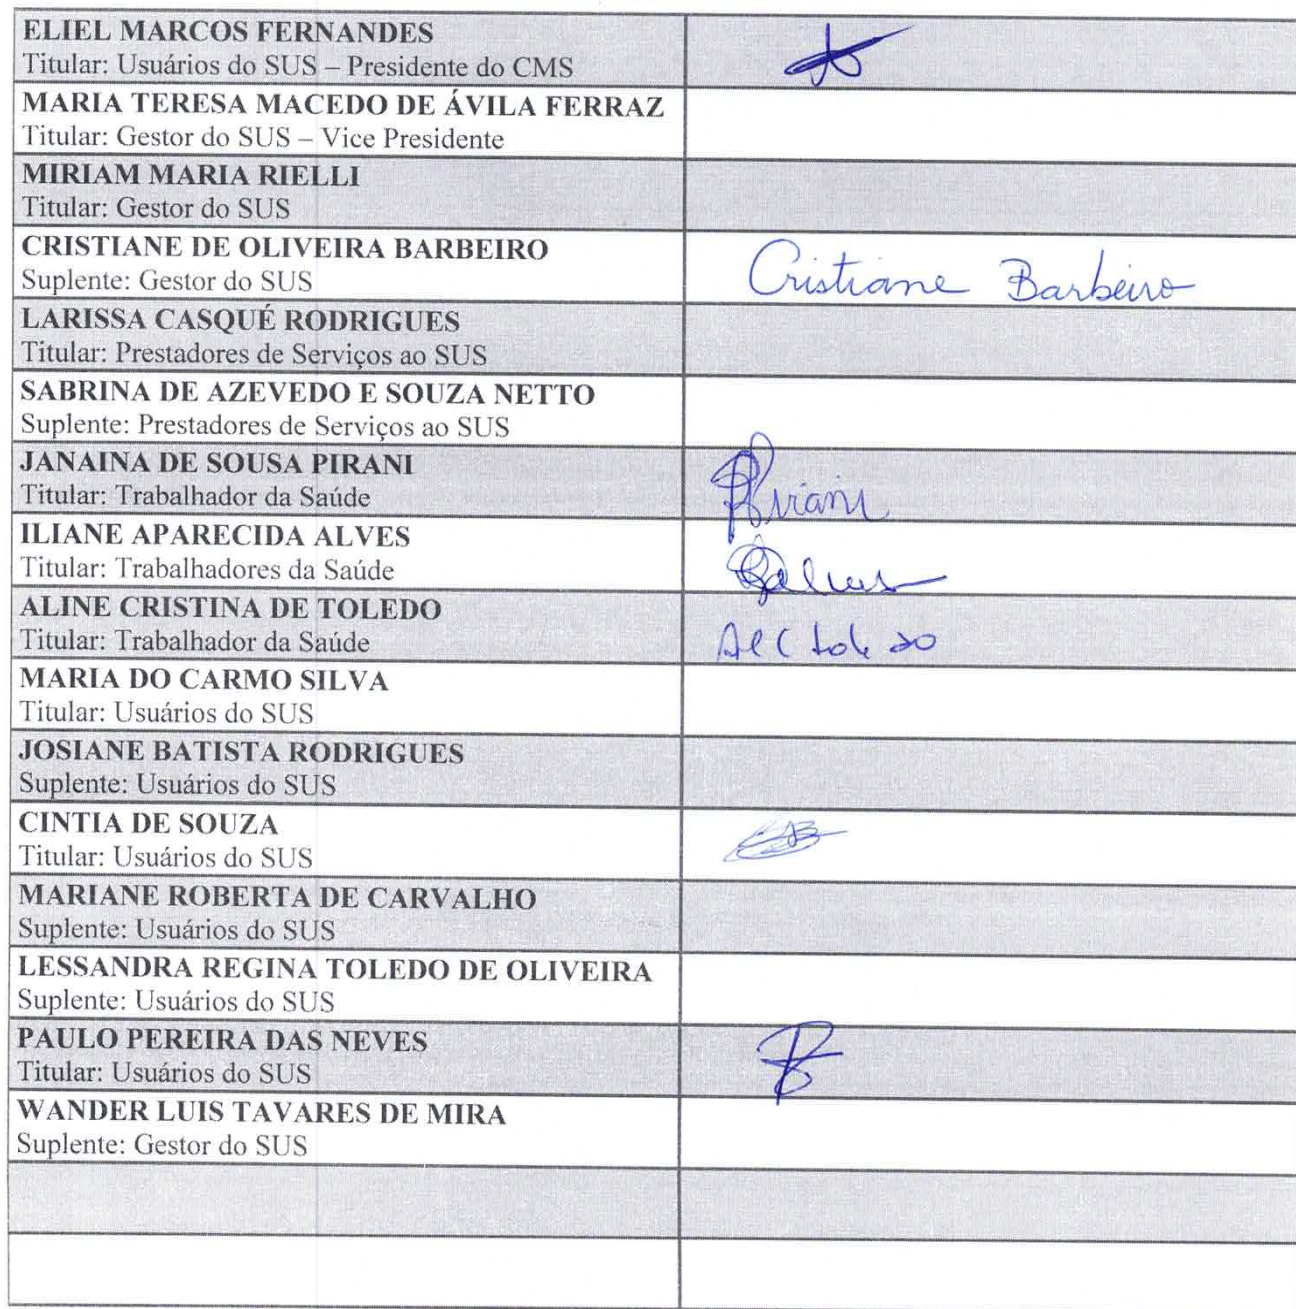 ELIEL MARCOS FERNANDES
Titular: Usuários do SUS – Presidente do CMS
MARIA TERESA MACEDO DE ÁVILA FERRAZ
Titular: Gestor do SUS – Vice Presidente
MIRIAM MARIA RIELLI
Titular: Gestor do SUS
CRISTIANE DE OLIVEIRA BARBEIRO
Suplente: Gestor do SUS
Cristiane Barbeiro
LARISSA CASQUÉ RODRIGUES
Titular: Prestadores de Serviços ao SUS
SABRINA DE AZEVEDO E SOUZA NETTO
Suplente: Prestadores de Serviços ao SUS
JANAINA DE SOUSA PIRANI
Titular: Trabalhador da Saúde
ILIANE APARECIDA ALVES
Titular: Trabalhadores da Saúde
ALINE CRISTINA DE TOLEDO
Titular: Trabalhador da Saúde
MARIA DO CARMO SILVA
Titular: Usuários do SUS
JOSIANE BATISTA RODRIGUES
Suplente: Usuários do SUS
CINTIA DE SOUZA
Titular: Usuários do SUS
MARIANE ROBERTA DE CARVALHO
Suplente: Usuários do SUS
LESSANDRA REGINA TOLEDO DE OLIVEIRA
Suplente: Usuários do SUS
PAULO PEREIRA DAS NEVES
Titular: Usuários do SUS
WANDER LUIS TAVARES DE MIRA
Suplente: Gestor do SUS